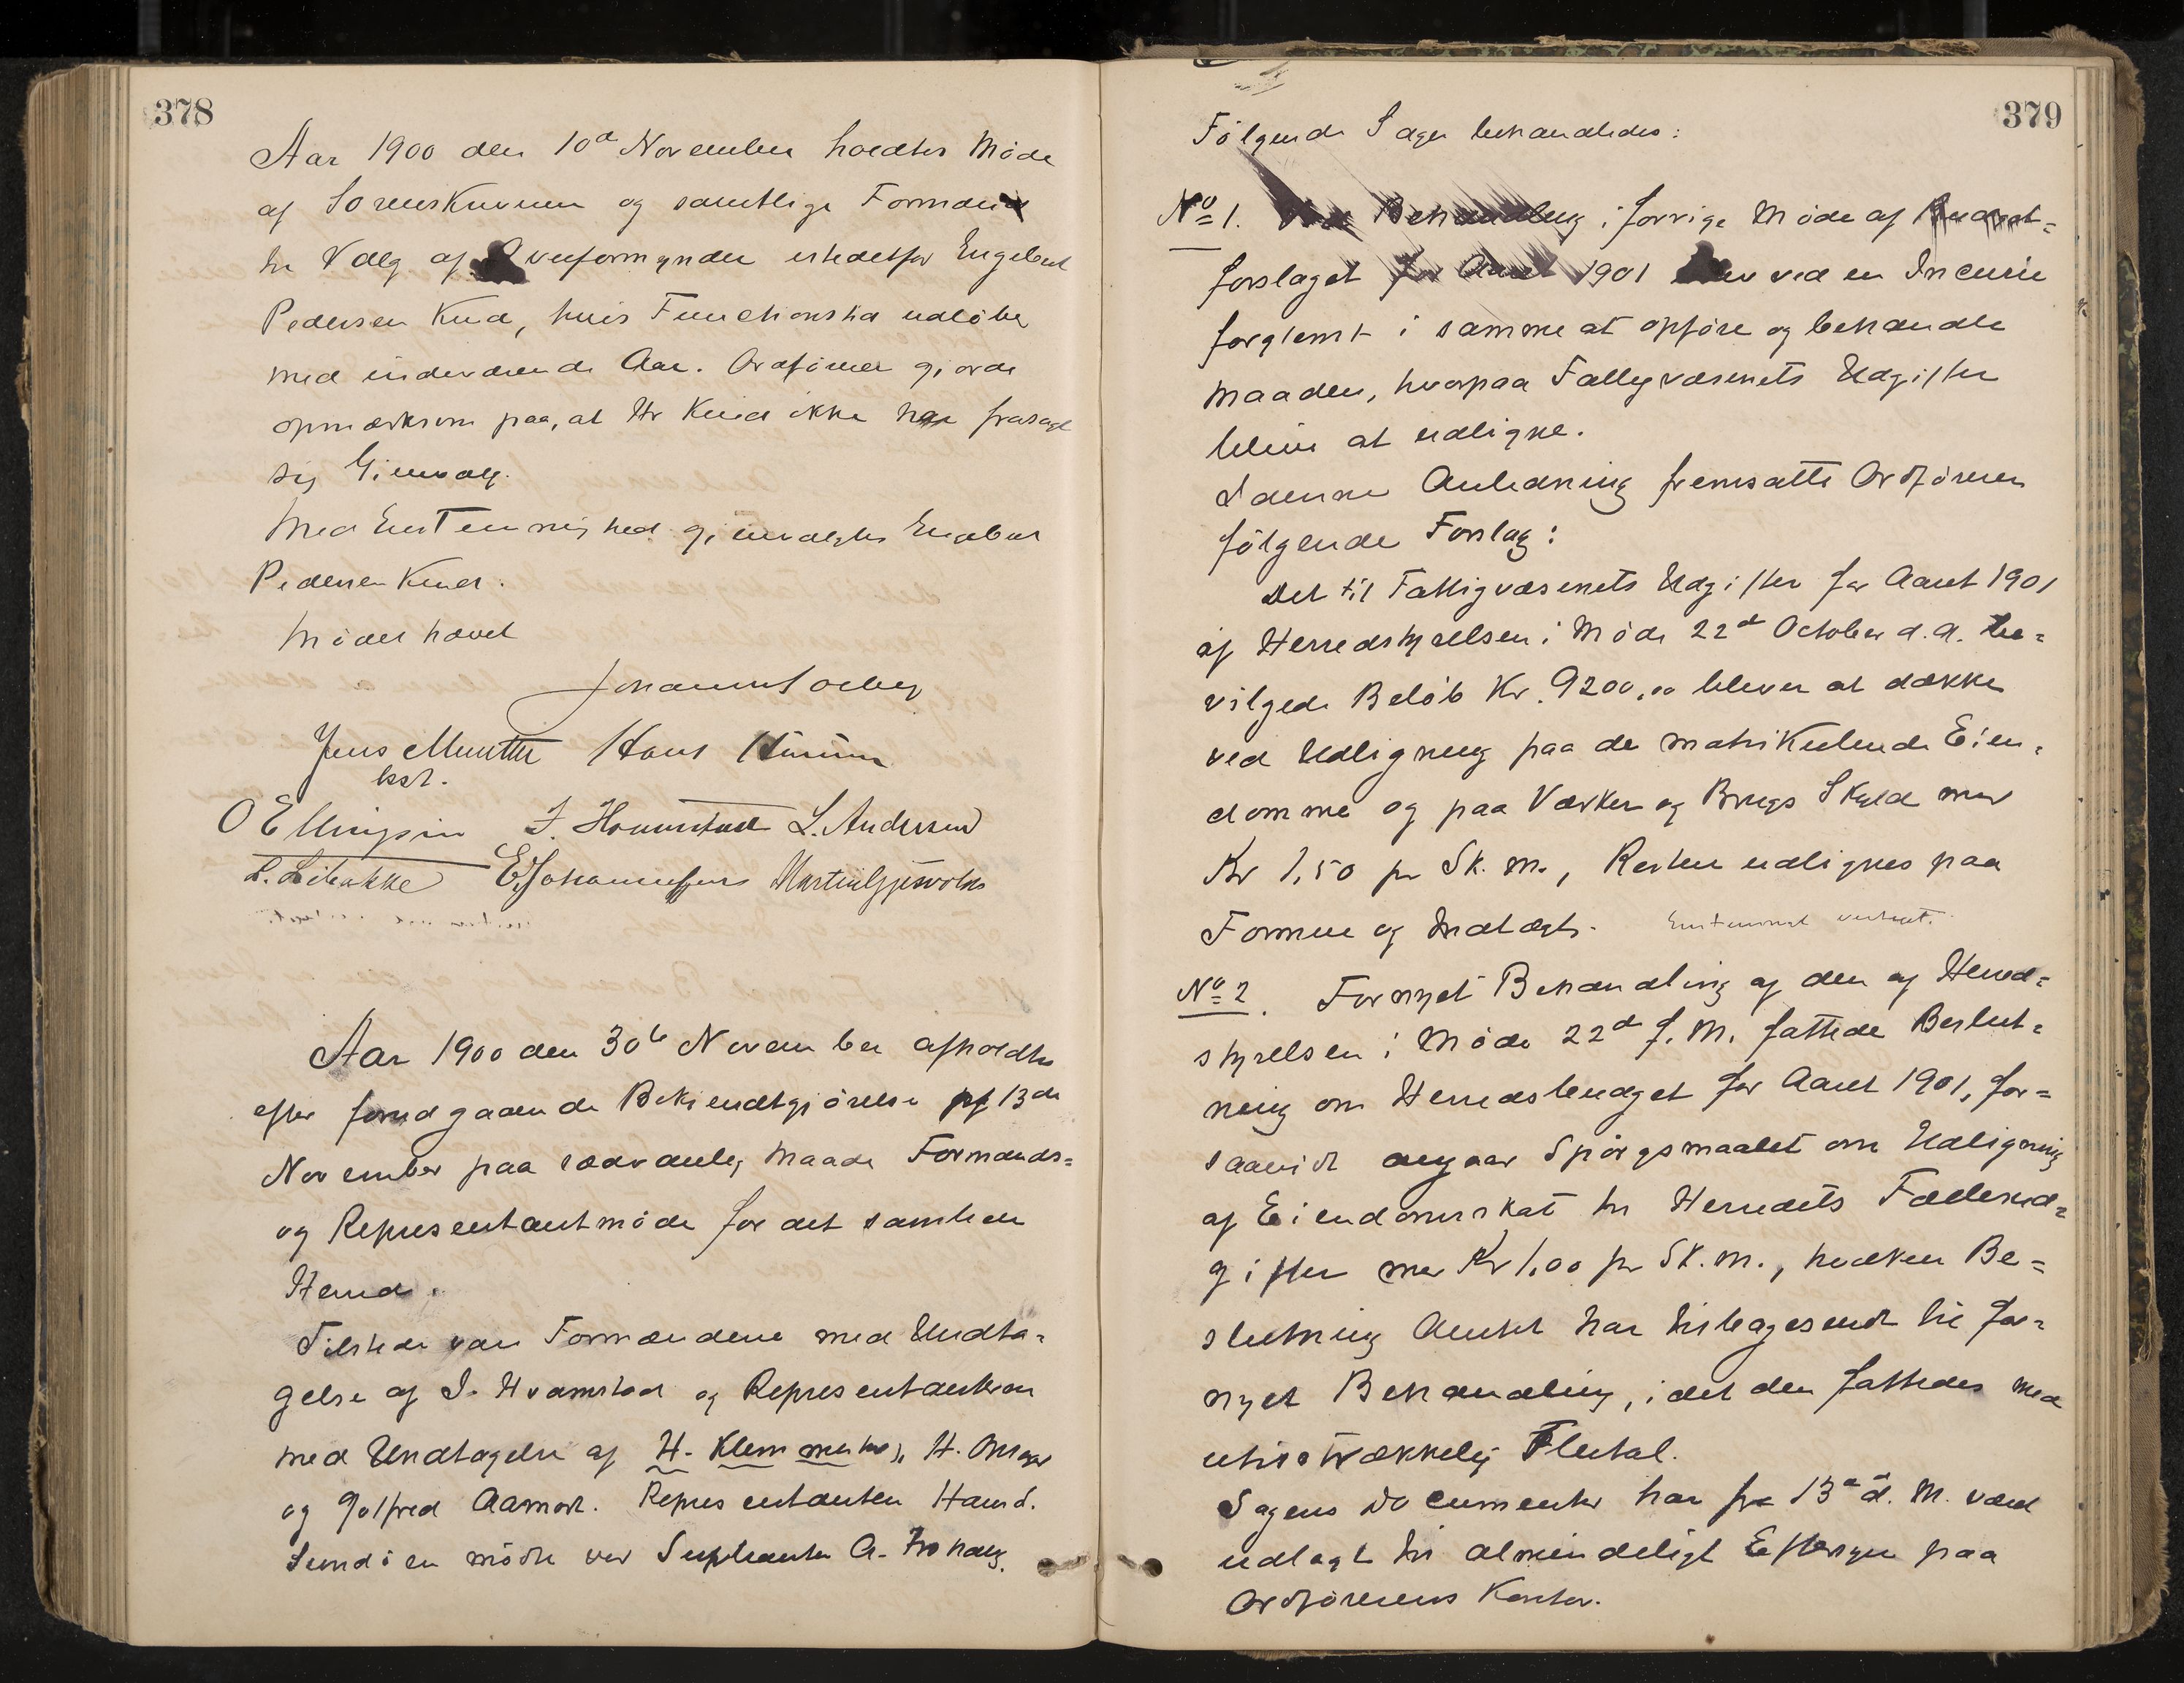 378
Aar 1900 den 10d November holdtes Møde
af Sorenskriveren og samtlige Formænd
til Valg af Overformynder istedetfor Engebret
Pedersen Kind, hvis Functionstid udløber
med indeværende Aar. Ordfører gjorde
opmærksom paa, at Hr Kind ikke har frasagt
sig Gjenvalg.
Med Enstemmighed gjenvalgtes Engebret
Pedersen Kind.
Mødet hævet
Johannes
Jens Munthe Hans
kst.
O Ellingsen L. Andersen
E. Johannessen Martin
Aar 1900 den 30te November afholdtes
efter forudgaaende Bekjendtgjørelse af 13de
November paa sædvanlig Maade Formands=
og Representantmøde for det samlede
Herred.
Tilstede var Formændene med Undta=
gelse af I. Hvamstad og Representanterne
med Undtagelse af H. H.
og Golfred Aamodt. Representanten Hans S.
mødte ved Suppleanten A.
379
Følgende Sager behandledes:
No 1. Behandling i forrige Møde af Budget=
forslaget for Aaret 1901 blev ved en Incurie
forglemt i samme at opføre og behandle
Maaden, hvorpaa Fattigvæsenets Udgifter
bliver at udligne.
I denne Anledning fremsatte Ordføreren
følgende Forslag:
Det til Fattigvæsenets Udgifter for Aaret 1901
af Herredstyrelsen i Møde 22d October d. A. be=
vilgede Beløb Kr. 9200,00 bliver at dække
ved Udligning paa de matrikulerede Eien=
domme og paa Værker og Brugs Skyld med
Kr 1,50 pr Sk. M., Resten udlignes paa
Formue og Indtægt. Enstemmigt vedtaget.
No 2. Fornyet Behandling af den af Herred=
styrelsen i Møde 22d f. M. fattede Beslut=
ning om Herredsbudget for Aaret 1901, for=
saavidt angaar Spørgsmaalet om Udligning
af Eiendomsskat til Herredets Fællesud=
gifter med Kr 1,00 pr Sk. M., hvilken Be=
slutning Amtet har tilbagesendt til for=
nyet Behandling, idet den fattedes med
utilstrækkelig Flertal.
Sagens Documenter har fra 13de d. M. været
udlagt til almindeligt Eftersyn paa
Ordførerens Kontor.